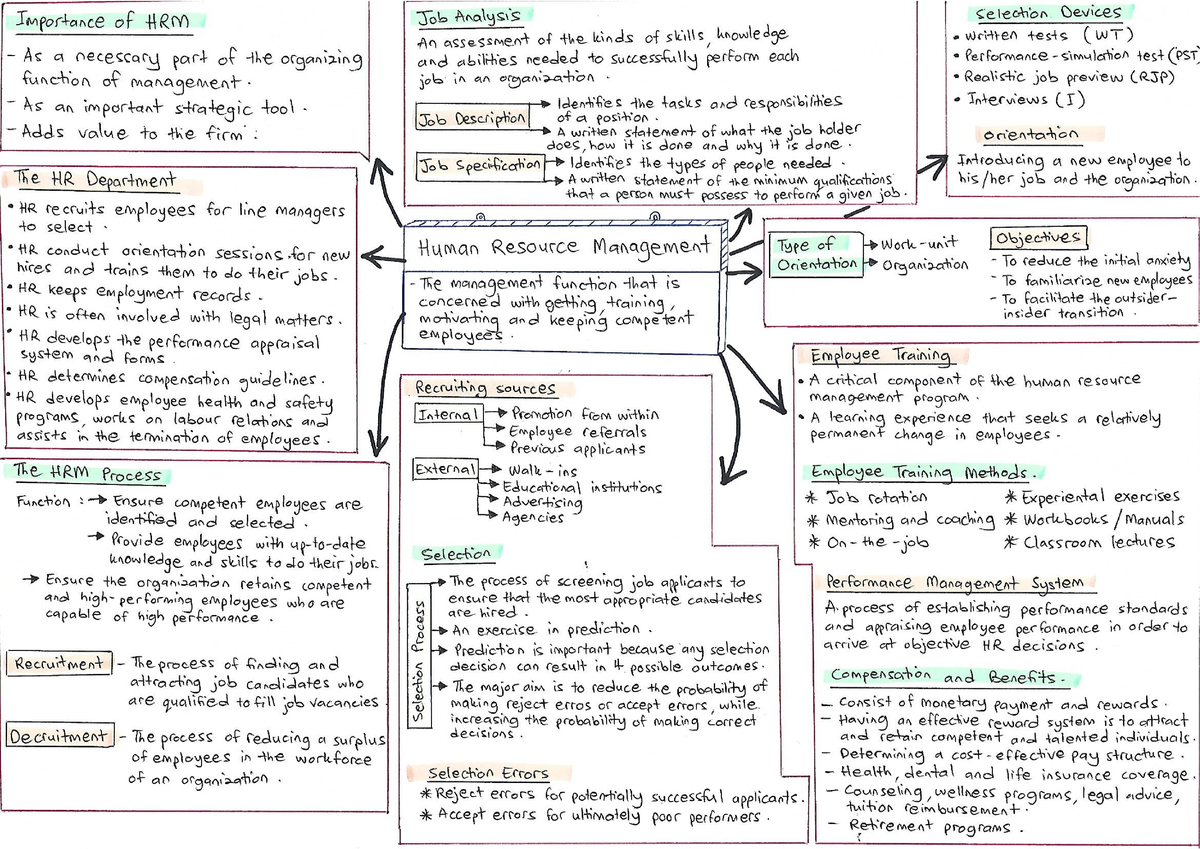 Importance of HRM
- As a necessary part of the organizing
function of management.
- As an important strategic tool.
- Adds value to the firm:
The HR Department
• HR recruits employees for line managers
to select.
• HR conduct orientation sessions for new
hires and trains them to do their jobs.
• HR keeps employment records.
• HR is often involved with legal matters.
• HR develops the performance appraisal
system and forms.
• HR determines compensation guidelines.
• HR develops employee health and safety
programs, works on labour relations and
assists in the termination of employees.
The HRM Process
Function : → Ensure competent employees are
identified and selected.
→ Provide employees with up-to-date
knowledge and skills to do their jobs.
→ Ensure the organization retains competent
and high-performing employees who are
capable of high performance.
Recruitment - The process of finding and
attracting job candidates who
are qualified to fill job vacancies
Decruitment - The process of reducing a surplus
of employees in the workforce
of an organization.
Job Analysis
An assessment of the kinds of skills, knowledge
and abilities needed to successfully perform each
job in an organization.
Job Description → Identifies the tasks and responsibilities
of a position.
→ A written statement of what the job holder
does, how it is done and why it is done.
Job Specification → Identifies the types of people needed.
→ A written statement of the minimum qualifications
that a person must possess to perform a given job.
Human Resource Management
- The management function that is
concerned with getting, training,
motivating and keeping competent
employees.
Recruiting sources
Internal → Promotion from within
→ Employee referrals
→ Previous applicants
External → Walk-ins
→ Educational institutions
→ Advertising
→ Agencies
Selection
Selection Process
→ The process of screening job applicants to
ensure that the most appropriate candidates
are hired.
→ An exercise in prediction.
→ Prediction is important because any selection
decision can result in 4 possible outcomes.
→ The major aim is to reduce the probability of
making reject erros or accept errors, while
increasing the probability of making correct
decisions.
Selection Errors
* Reject errors for potentially successful applicants.
* Accept errors for ultimately poor performers.
Selection Devices
• Written tests (WT)
• Performance-simulation test (PST
• Realistic job preview (RJP)
• Interviews (I)
Orientation
Introducing a new employee to
his/her job and the organization.
Type of
Orientation
→ Work-unit
→ Organization
Objectives
- To reduce the initial anxiety
- To familiarize new employees
- To facilitate the outsider-
insider transition.
Employee Training
• A critical component of the human resource
management program.
• A learning experience that seeks a relatively
permanent change in employees.
Employee Training Methods.
* Job rotation
* Mentoring and coaching
* On-the-job
* Experiential exercises
* Workbooks / Manuals
* Classroom lectures
Performance Management System
A process of establishing performance standards
and appraising employee performance in order to
arrive at objective HR decisions.
Compensation and Benefits.
- Consist of monetary payment and rewards.
- Having an effective reward system is to attract
and retain competent and talented individuals.
- Determining a cost-effective pay structure.
- Health, dental and life insurance coverage.
- Counseling, wellness programs, legal advice,
tuition reimbursement.
- Retirement programs.